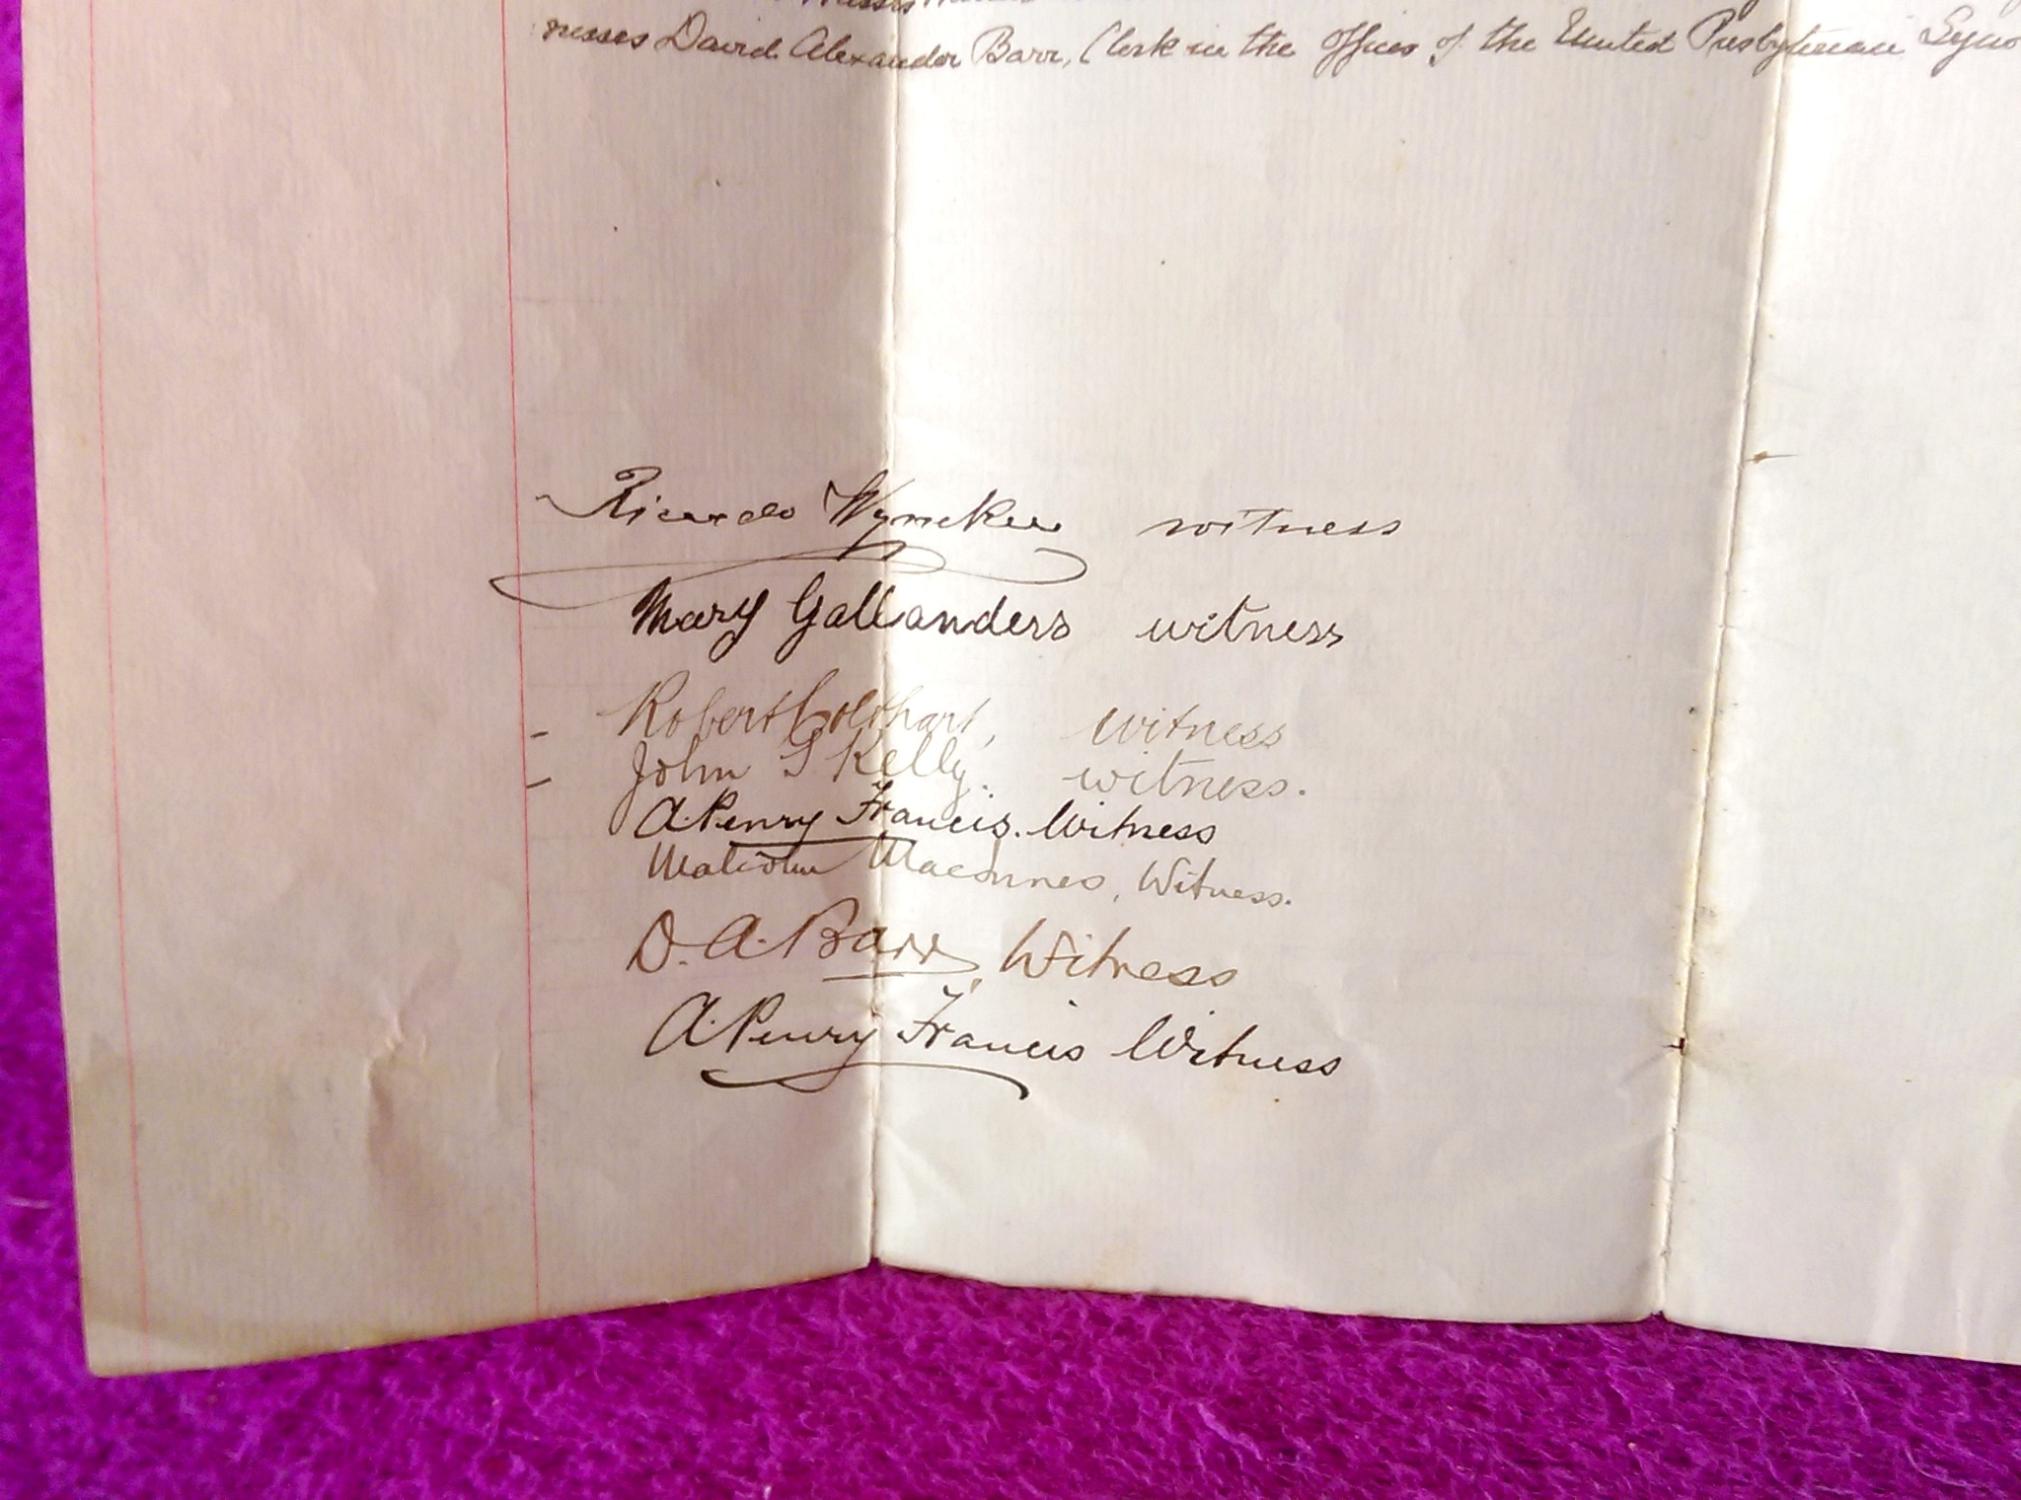 nesses David Alexander Barr, Clerk in the Offices of the United Presbyterian Syno
Ricardo Wyneken witness
Mary Gallanders witness
Robert Coldhart, witness
John S Kelly. witness.
A. Penry Francis. Witness
Malcolm MacInnes, Witness.
D. A. Barr, Witness
A. Penry Francis Witness